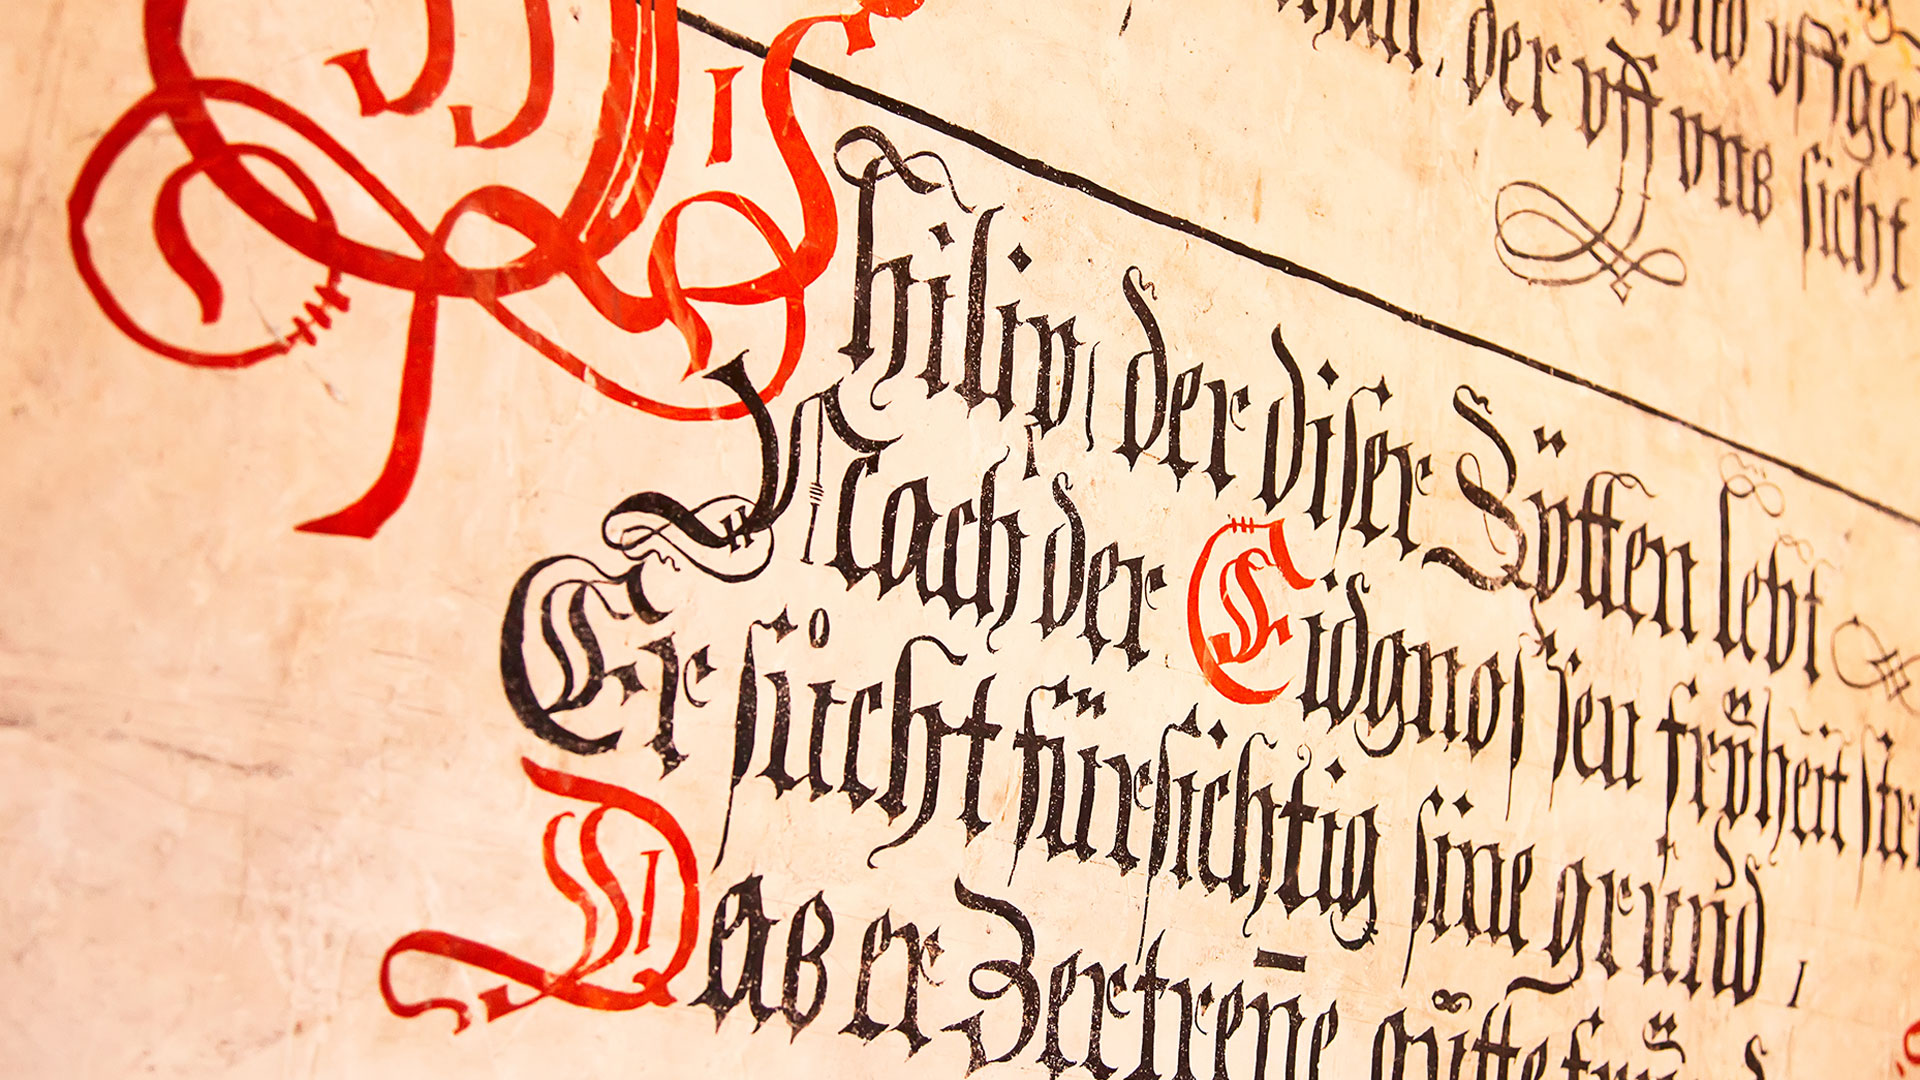 vnd vff ger
der vff vnß sicht
Philip, der diser Zÿtten lebt
Nach der Eidgnossen frÿheit stre
Er sůcht fürsichtig sine grund,
Daß er Zertrene